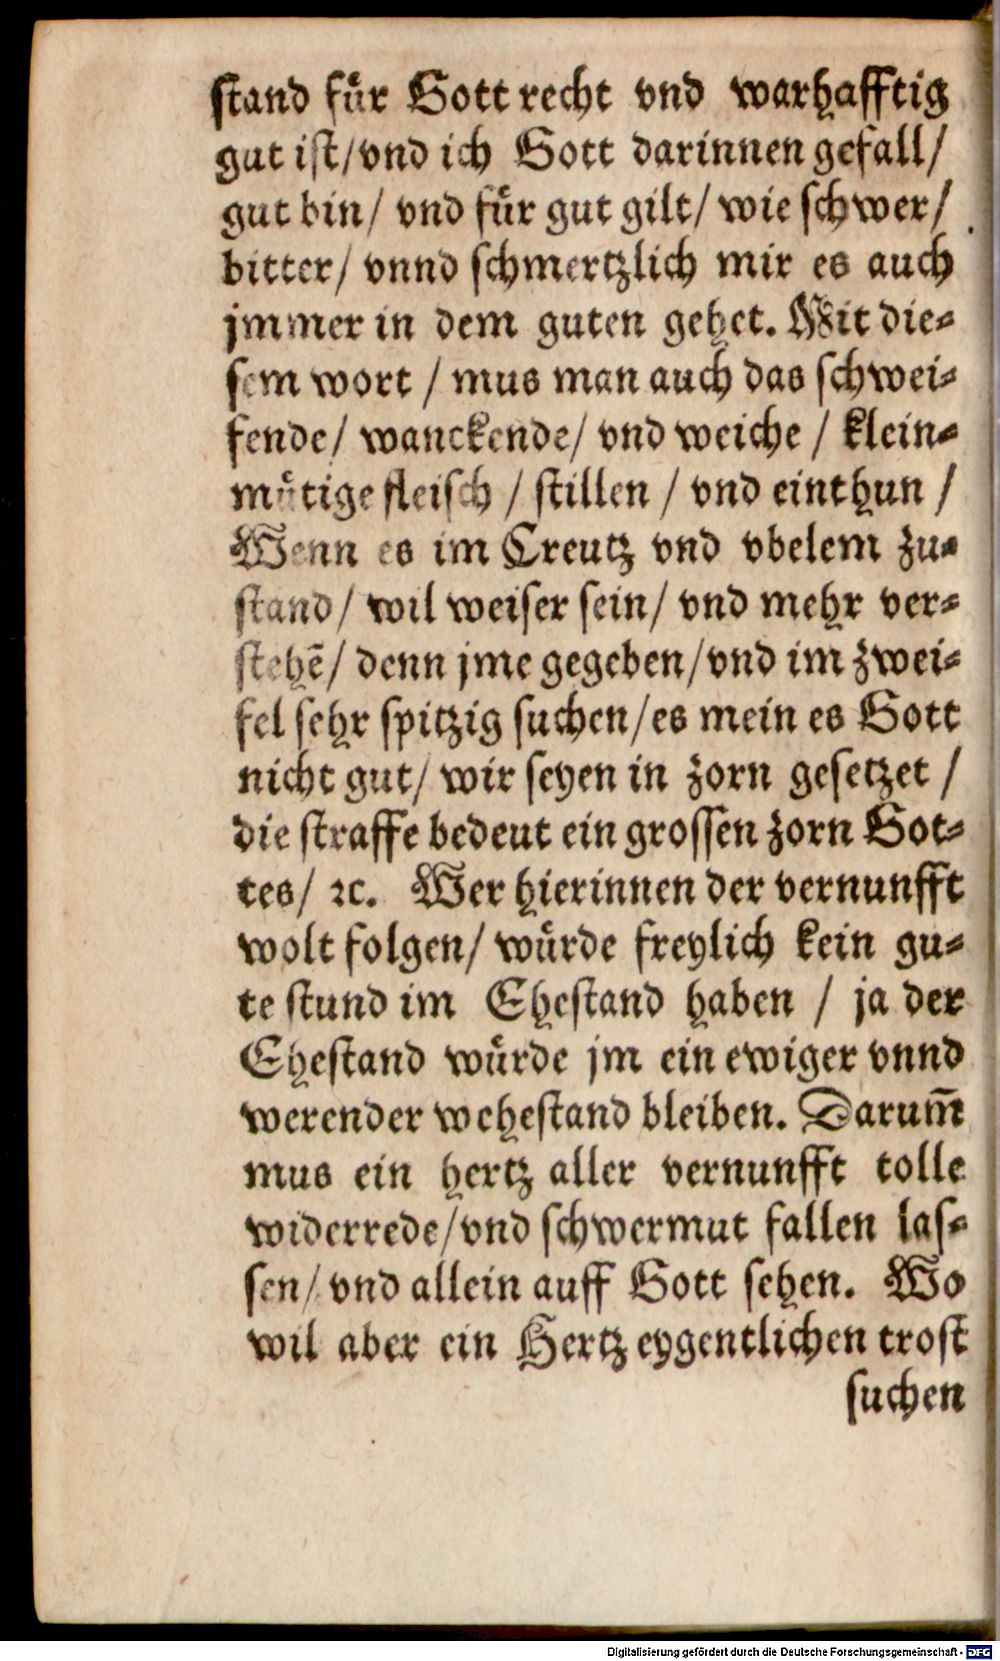 stand fuͤr Gott recht vnd warhafftig
gut ist/vnd ich Gott darinnen gefall/
gut bin/ vnd fuͤr gut gilt/ wie schwer/
bitter/ vnnd schmertzlich mir es auch
jmmer in dem guten gehet. Mit die⸗
sem wort / mus man auch das schwei⸗
fende/ wanckende/ vnd weiche / klein⸗
muͤtige fleisch / stillen / vnd einthun /
Wenn es im Creutz vnd vbelem zu⸗
stand/ wil weiser sein/ vnd mehr ver⸗
stehē/ denn jme gegeben/vnd im zwei⸗
fel sehr spitzig suchen/es mein es Gott
nicht gut/ wir seyen in zorn gesetzet /
die straffe bedeut ein grossen zorn Got⸗
tes/ ꝛc. Wer hierinnen der vernunfft
wolt folgen/ wuͤrde freylich kein gu⸗
te stund im Ehestand haben / ja der
Ehestand wuͤrde jm ein ewiger vnnd
werender wehestand bleiben. Darum̄
mus ein hertz aller vernunfft tolle
widerrede/vnd schwermut fallen las⸗
sen/ vnd allein auff Gott sehen. Wo
wil aber ein Hertz eygentlichen trost
suchen
Digitalisierung gefördert durch die Deutsche Forschungsgemeinschaft - DFG